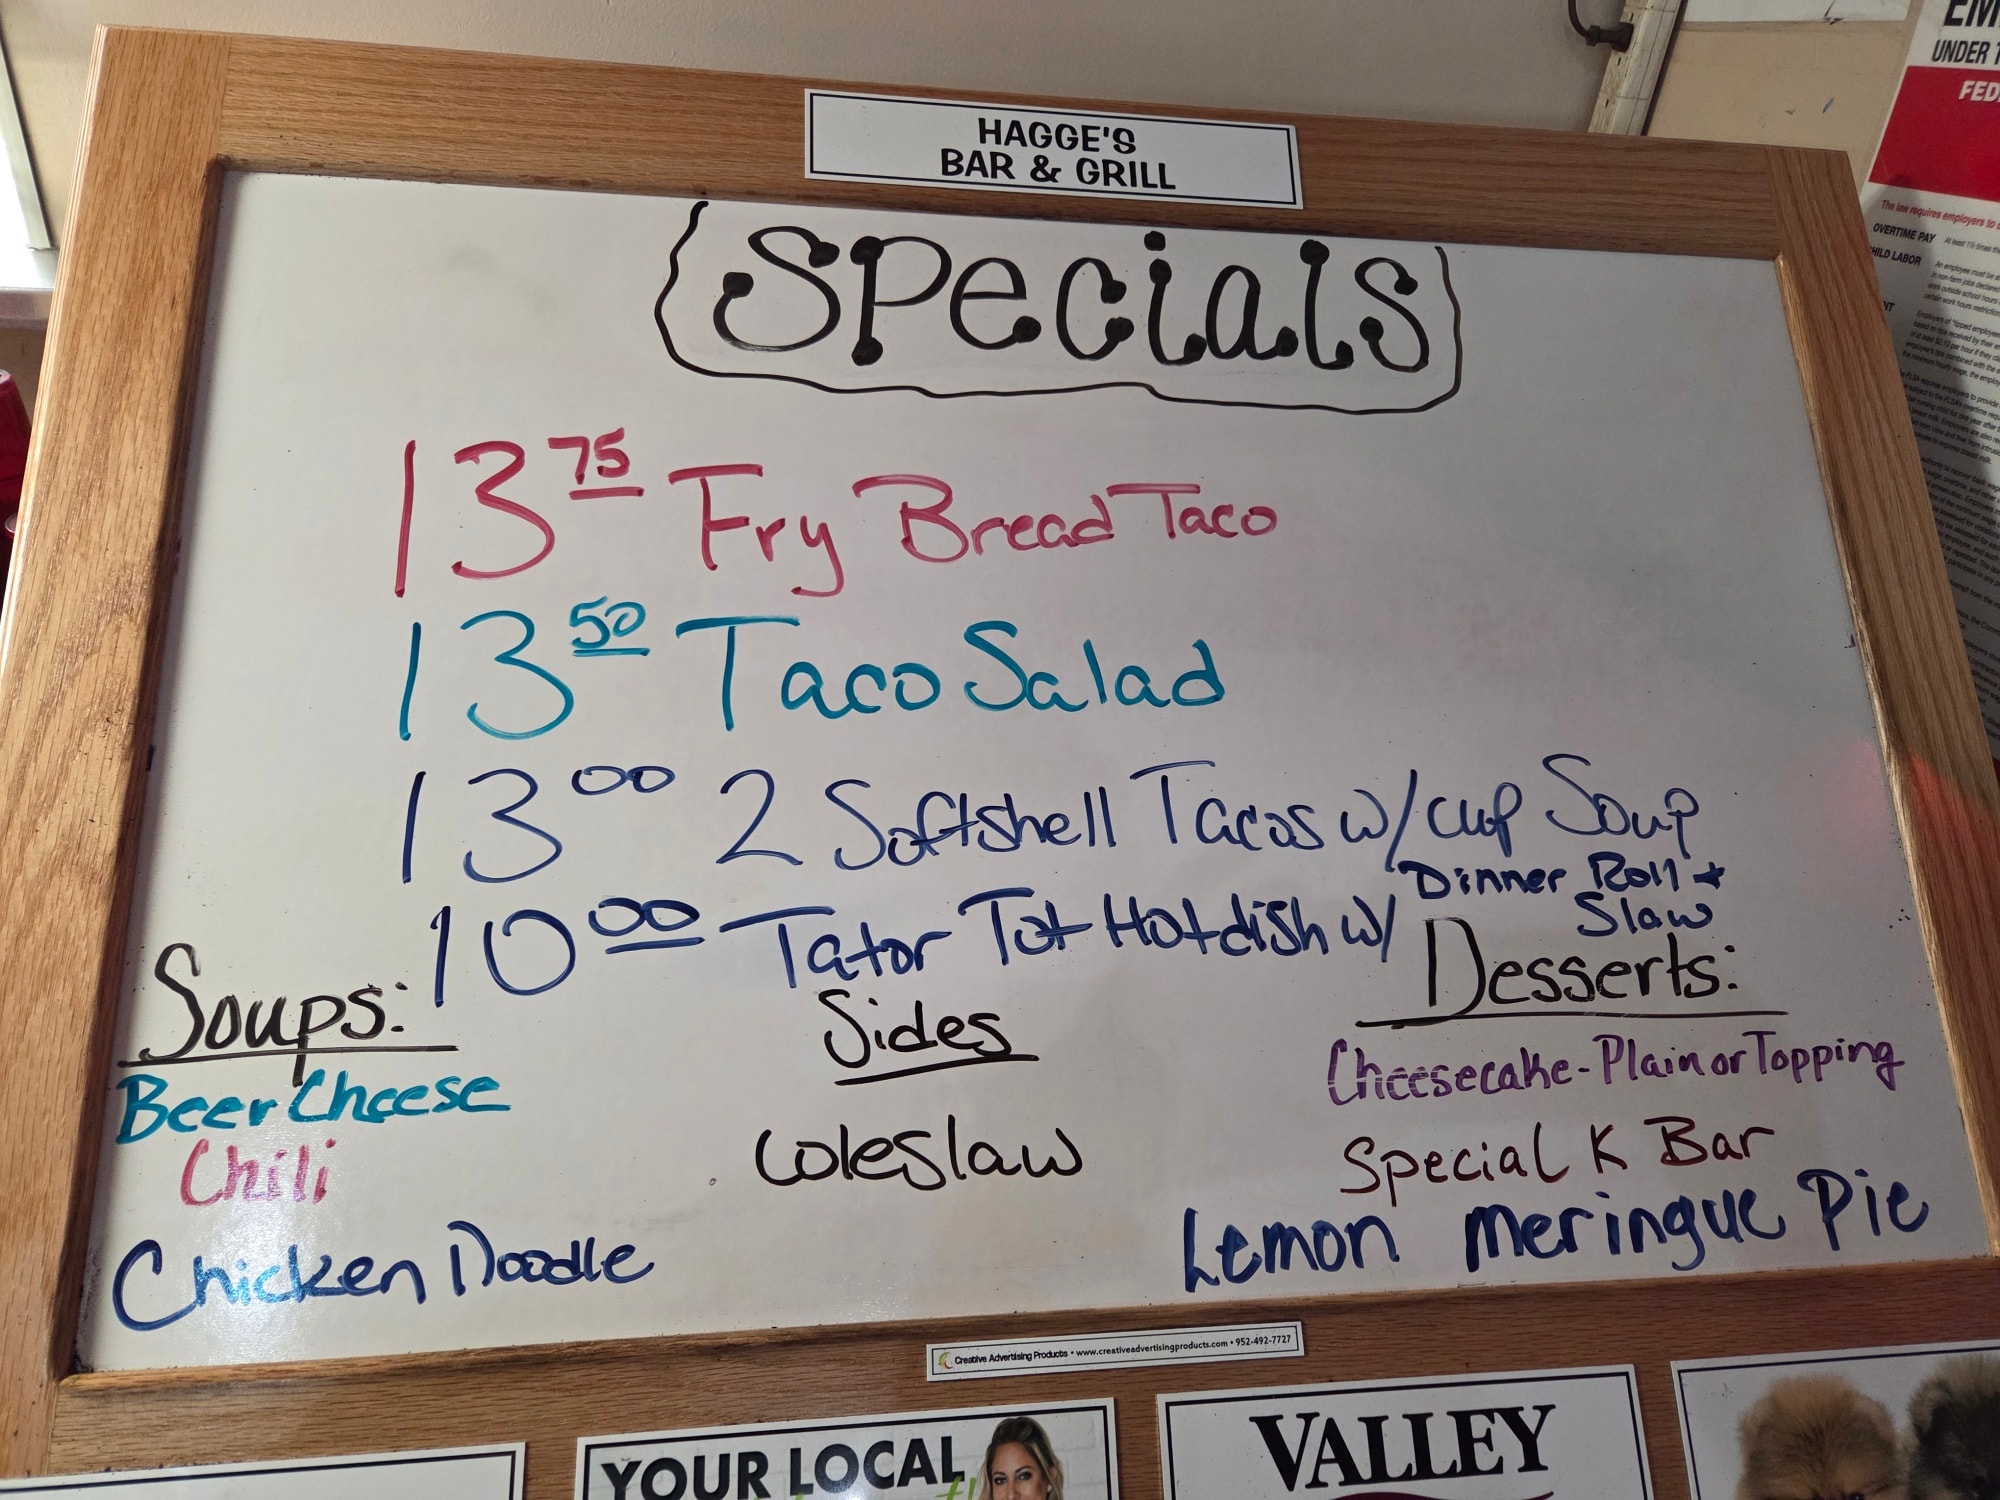 HAGGE'S
BAR & GRILL
Specials
13 75 Fry Bread Taco
13 50 Taco Salad
13 00 2 Softshell Tacos w/ cup Soup
10 00 Tator Tot Hotdish w/ Dinner Roll +
Slaw
Soups:
Beer Cheese
Chili
Chicken Doodle
Sides
Coleslaw
Desserts:
Cheesecake - Plain or Topping
Special K Bar
Lemon Meringue Pie
Creative Advertising Products • www.creativeadvertisingproducts.com • 952-492-7727
YOUR LOCAL
VALLEY
UNDER
FED
The law requires employers to
OVERTIME PAY
At least 1½ times
CHILD LABOR
An employee must be